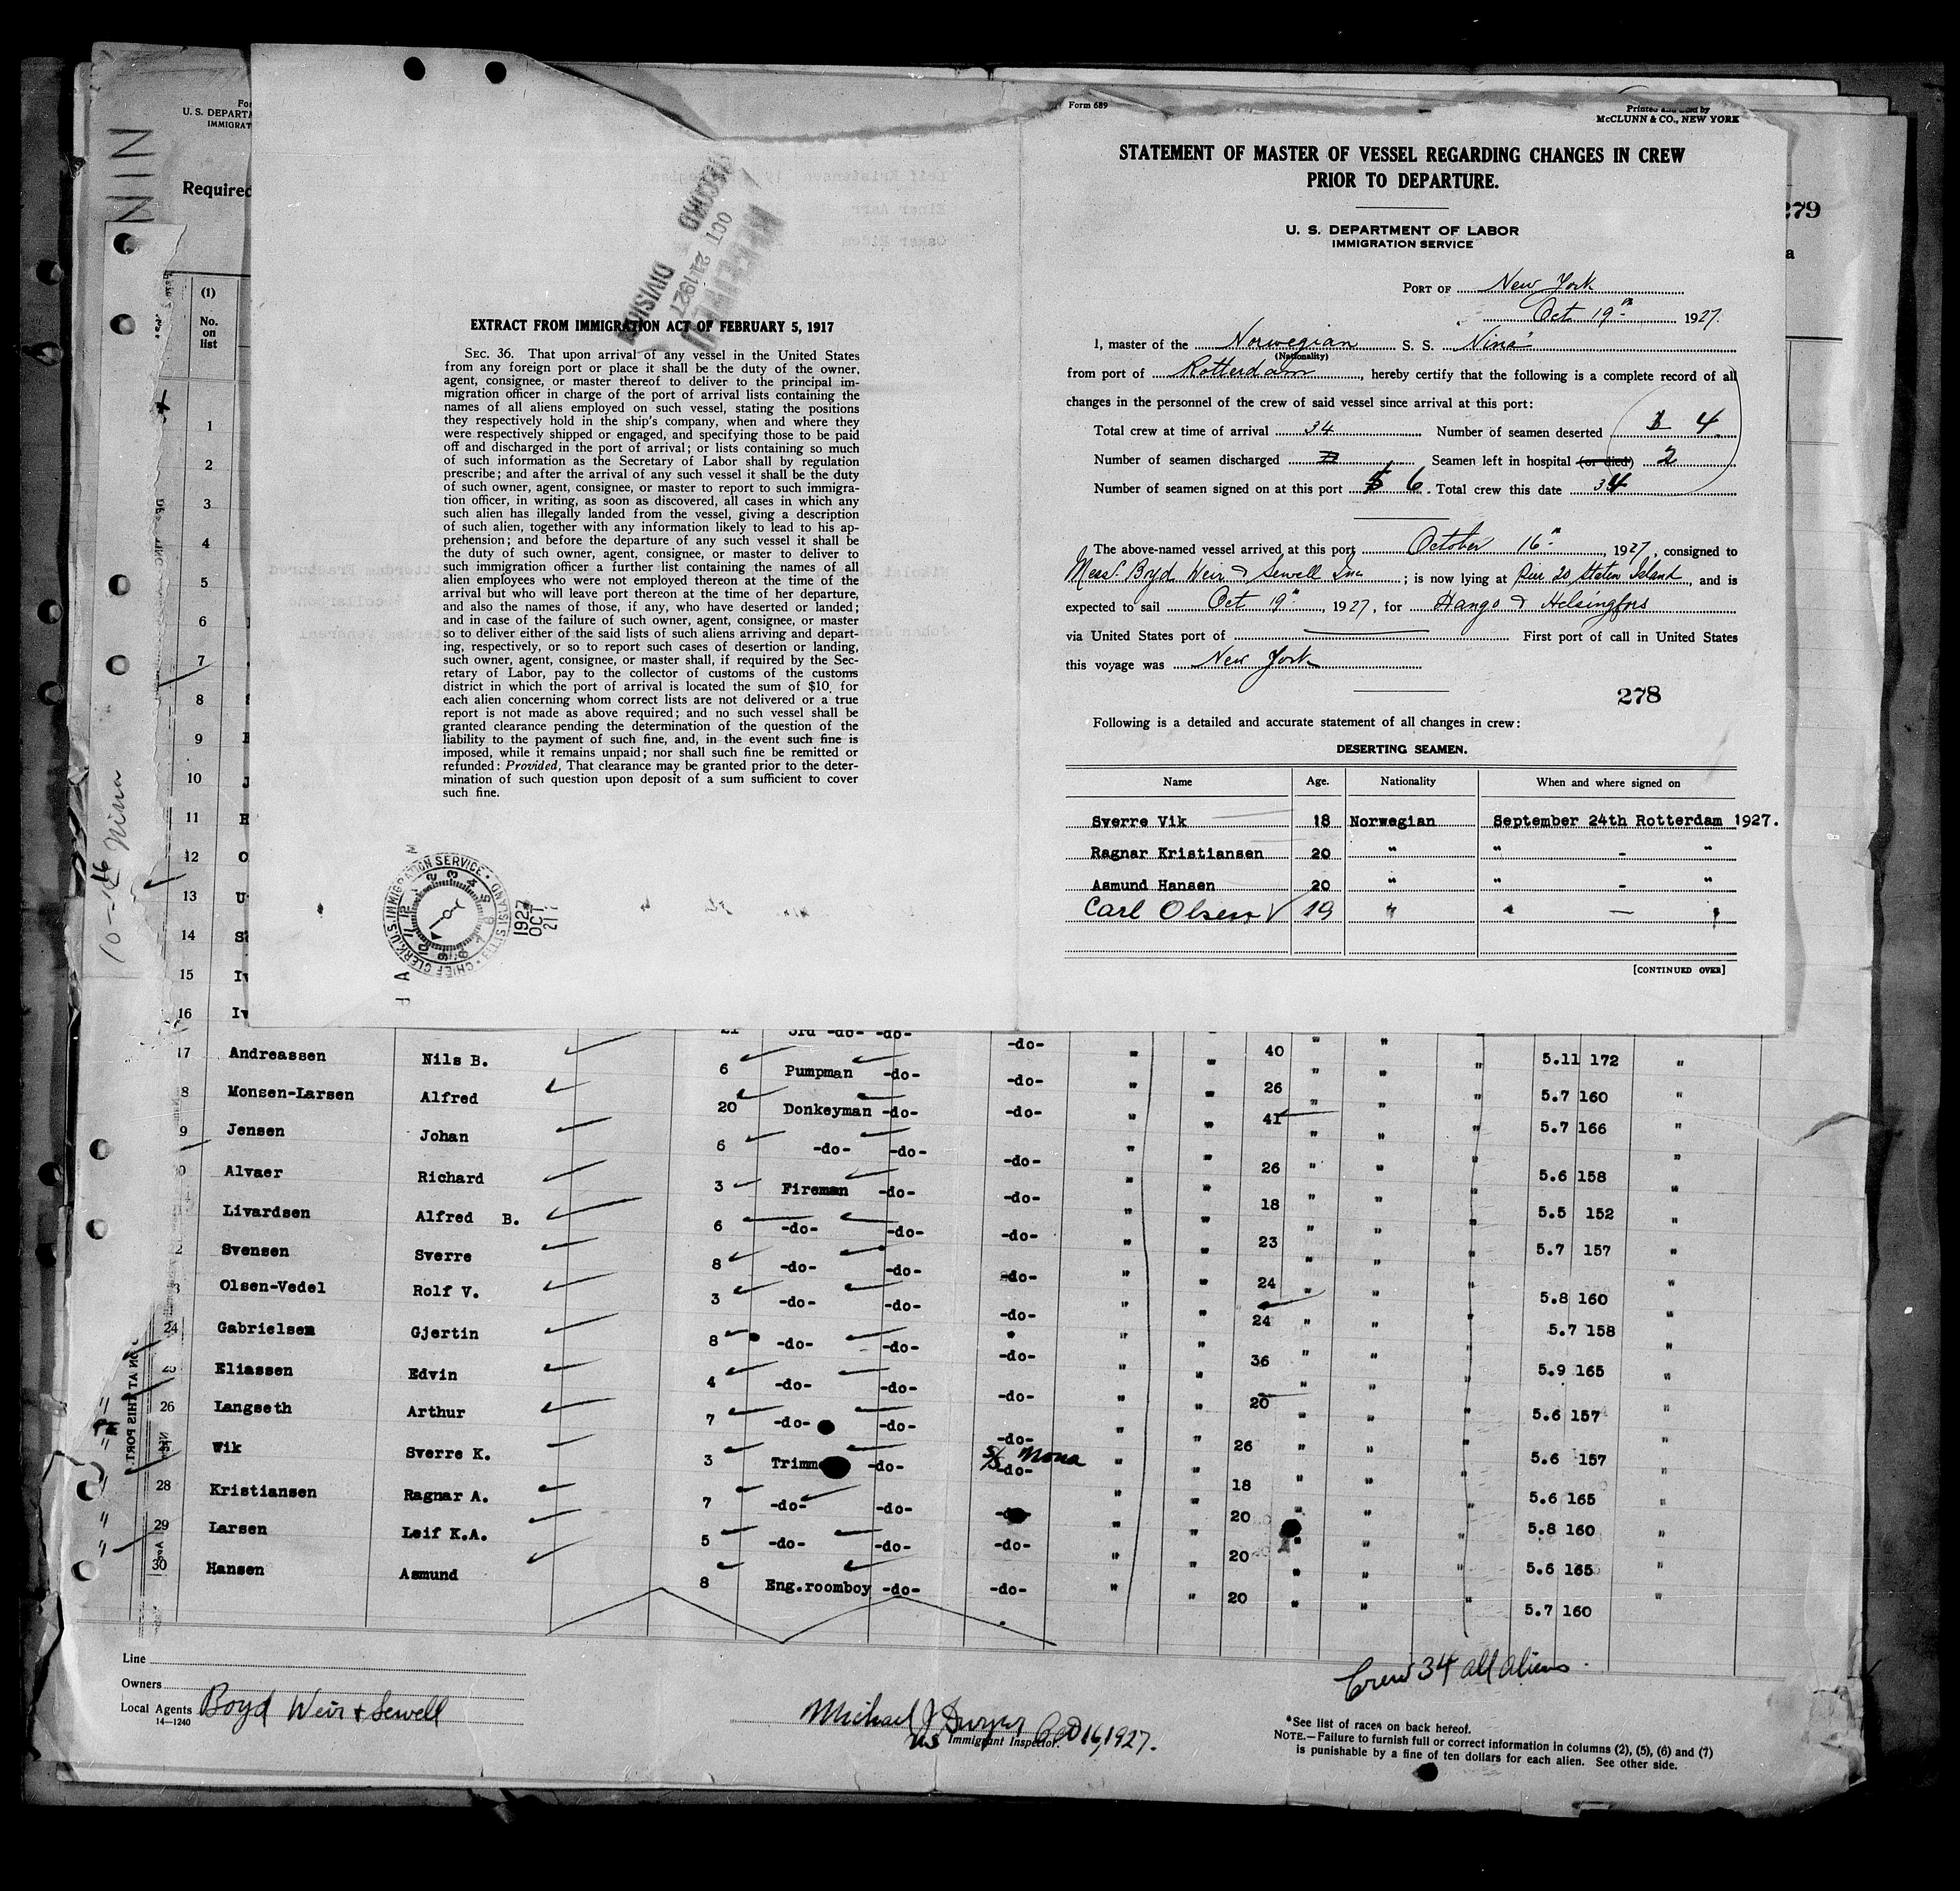 For
U. S. DEPARTM
IMMIGRAT
Required
NIN
10-16 Nina
279
a
RECORD
OCT 21 1927
DIVISION
EXTRACT FROM IMMIGRATION ACT OF FEBRUARY 5, 1917
SEC. 36. That upon arrival of any vessel in the United States
from any foreign port or place it shall be the duty of the owner,
agent, consignee, or master thereof to deliver to the principal im-
migration officer in charge of the port of arrival lists containing the
names of all aliens employed on such vessel, stating the positions
they respectively hold in the ship's company, when and where they
were respectively shipped or engaged, and specifying those to be paid
off and discharged in the port of arrival; or lists containing so much
of such information as the Secretary of Labor shall by regulation
prescribe; and after the arrival of any such vessel it shall be the duty
of such owner, agent, consignee, or master to report to such immigra-
tion officer, in writing, as soon as discovered, all cases in which any
such alien has illegally landed from the vessel, giving a description
of such alien, together with any information likely to lead to his ap-
prehension; and before the departure of any such vessel it shall be
the duty of such owner, agent, consignee, or master to deliver to
such immigration officer a further list containing the names of all
alien employees who were not employed thereon at the time of the
arrival but who will leave port thereon at the time of her departure,
and also the names of those, if any, who have deserted or landed;
and in case of the failure of such owner, agent, consignee, or master
so to deliver either of the said lists of such aliens arriving and depart-
ing, respectively, or so to report such cases of desertion or landing,
such owner, agent, consignee, or master shall, if required by the Sec-
retary of Labor, pay to the collector of customs of the customs
district in which the port of arrival is located the sum of $10. for
each alien concerning whom correct lists are not delivered or a true
report is not made as above required; and no such vessel shall be
granted clearance pending the determination of the question of the
liability to the payment of such fine, and, in the event such fine is
imposed, while it remains unpaid; nor shall such fine be remitted or
refunded: Provided, That clearance may be granted prior to the deter-
mination of such question upon deposit of a sum sufficient to cover
such fine.
CHIEF CLERK, U.S. IMMIGRATION SERVICE • ELLIS ISLAND •
1927 OCT 21
Form 689
Printed and sold by
McCLUNN & CO., NEW YORK
STATEMENT OF MASTER OF VESSEL REGARDING CHANGES IN CREW
PRIOR TO DEPARTURE.
U. S. DEPARTMENT OF LABOR
IMMIGRATION SERVICE
PORT OF New York
Oct 19th 1927.
I, master of the Norwegian S. S. "Nina"
(Nationality)
from port of Rotterdam, hereby certify that the following is a complete record of all
changes in the personnel of the crew of said vessel since arrival at this port:
Total crew at time of arrival 34 Number of seamen deserted 4.
Number of seamen discharged Seamen left in hospital (or died) 2
Number of seamen signed on at this port 6. Total crew this date 34
The above-named vessel arrived at this port October 16th, 1927, consigned to
Mess. Boyd Weir & Sewell Inc; is now lying at Pier 20 Staten Island, and is
expected to sail Oct 19th, 1927, for Hango & Helsingfors
via United States port of First port of call in United States
this voyage was New York
278
Following is a detailed and accurate statement of all changes in crew:
DESERTING SEAMEN.
Name Age. Nationality When and where signed on
Sverre Vik 18 Norwegian September 24th Rotterdam 1927.
Ragnar Kristiansen 20 " " - "
Asmund Hansen 20 " " - "
Carl Olsen √ 19 " " — "
[CONTINUED OVER]
(1)
No.
on
list
1
2
3
4
5
6
7
8
9
10
11 H
12 O
13 U
14
15 Iv
16 Iv 21 3rd -do- -do- -do- " " 40 " " " 5.11 172 "
17 Andreassen Nils B. 6 Pumpman -do- -do- " " 26 " " " 5.7 160 "
8 Monsen-Larsen Alfred 20 Donkeyman -do- -do- " " 41 " " " 5.7 166 "
9 Jensen Johan 6 -do- -do- -do- " " 26 " " " 5.6 158 "
0 Alvaer Richard 3 Fireman -do- -do- " " 18 " " " 5.5 152 "
Livardsen Alfred B. 6 -do- -do- -do- " " 23 " " " 5.7 157 "
2 Svensen Sverre 8 -do- -do- -do- " " 24 " " " 5.8 160 "
3 Olsen-Vedel Rolf V. 3 -do- -do- -do- " " 24 " " " 5.7 158 "
24 Gabrielsen Gjertin 8 -do- -do- -do- " " 36 " " " 5.9 165 "
Eliassen Edvin 4 -do- -do- -do- " " 20 " " " 5.6 157 "
26 Langseth Arthur 7 -do- -do- -do- " " 26 " " " 5.6 157 "
Wik Sverre K. 3 Trimm -do- S/S Mona -do- " " 18 " " " 5.6 165 "
28 Kristiansen Ragnar A. 7 -do- -do- " " 20 " " " 5.8 160 "
29 Larsen Leif K.A. 5 -do- -do- -do- " " 20 " " " 5.6 165 "
30 Hansen Asmund 8 Eng.roomboy -do- -do- " " 20 " " " 5.7 160 "
Line
Owners
Local Agents Boyd Weir & Sewell
14—1240
Michael J Dwyer Oct 16, 1927.
US Immigrant Inspector.
Crew 34 all aliens.
*See list of races on back hereof.
NOTE.—Failure to furnish full or correct information in columns (2), (5), (6) and (7)
is punishable by a fine of ten dollars for each alien. See other side.